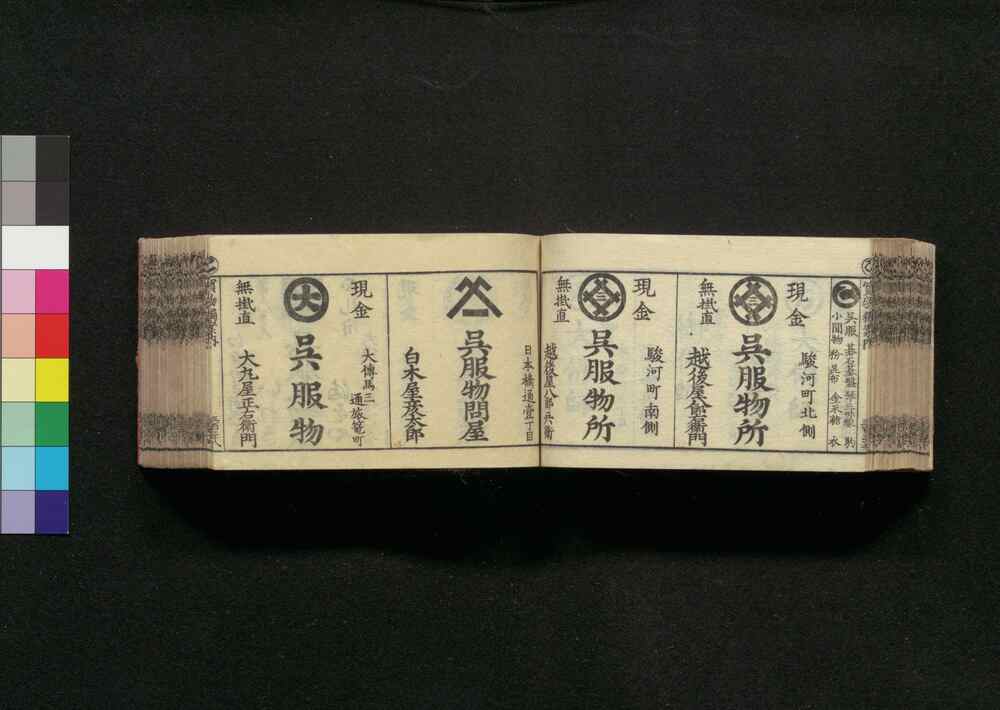 呉服 碁石碁盤 琴三味撃 駒
小間物 粉 昆布 金米糖 衣
現金
駿河町北側
呉服物所
無掛直
越後屋八郎右衛門
現金
駿河町南側
呉服物所
無掛直
越後屋八郎兵衛
日本橋通壹丁目
呉服物問屋
白木屋彦太郎
現金
大傳馬三
通旅篭町
大
呉服物
無掛直
大丸屋正右衛門